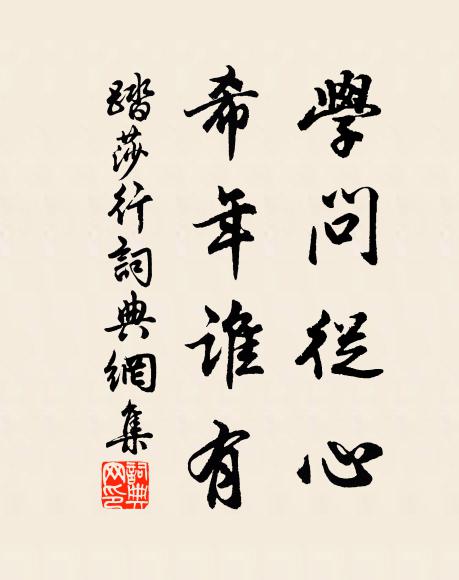 學問從心
希年誰有
踏莎行詞典網集
詞典網印